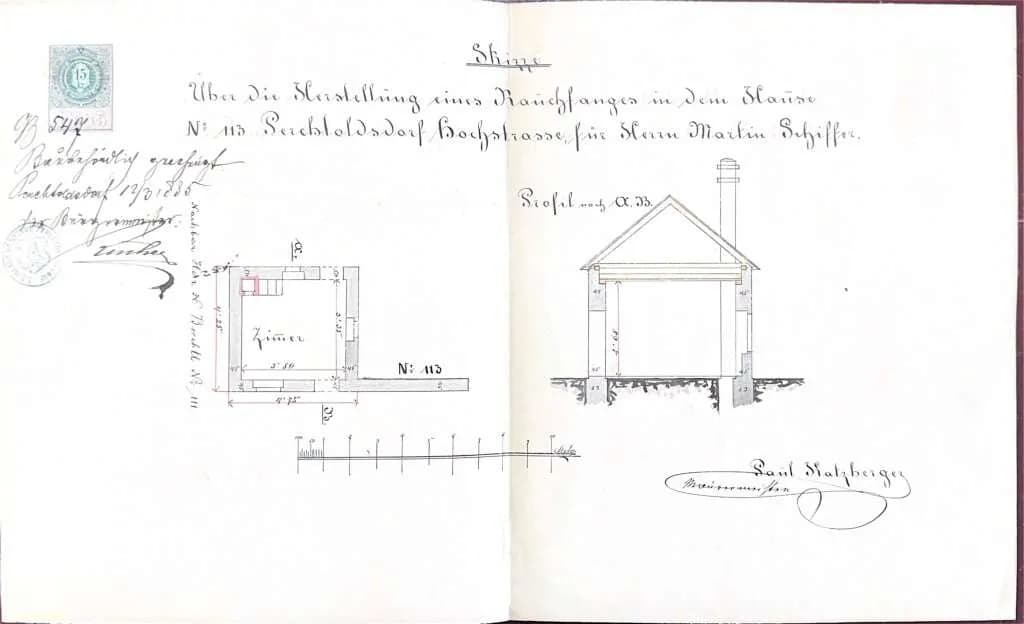 15
B 547
Baubehördlich genehmigt
Perchtoldsdorf 12/3 1885
Der Bürgermeister:
Skizze
Über die Herstellung eines Rauchfanges in dem Hause
No. 113 Perchtoldsdorf Hochstrasse, für Herrn Martin Schiffer.
Profil nach A.B.
A.
Zimmer
3·86
4·25
3·35
No. 113
4·75
B.
Nachbar
No. 111
45
45
45
45
Meter
Paul Katzberger
Maurermeister